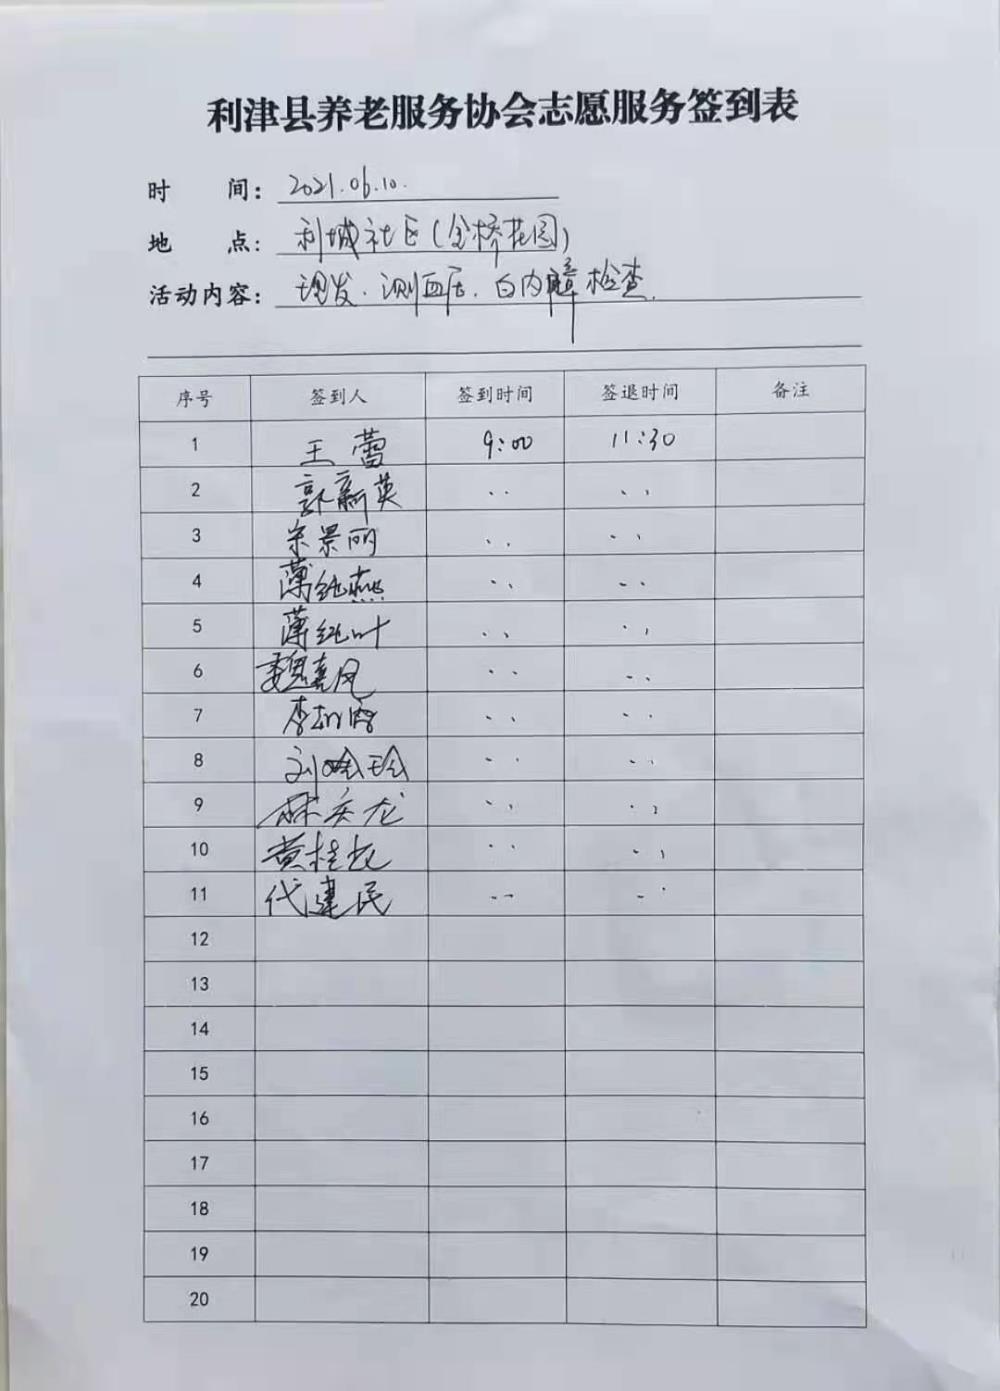 利津县养老服务协会志愿服务签到表
时 间: 2021.06.10.
地 点: 利城社区(金桥花园)
活动内容: 理发.测血压.白内障检查.
序号 签到人 签到时间 签退时间 备注
1 王蕾 9:00 11:30
2 郭新英 〃 〃
3 宋景丽 〃 〃
4 薄纯燕 〃 〃
5 薄纯叶 〃 〃
6 魏喜凤 〃 〃
7 李 〃 〃
8 刘 玲 〃 〃
9 林庆龙 〃 〃
10 黄桂 〃 〃
11 代建民 〃 〃
12
13
14
15
16
17
18
19
20